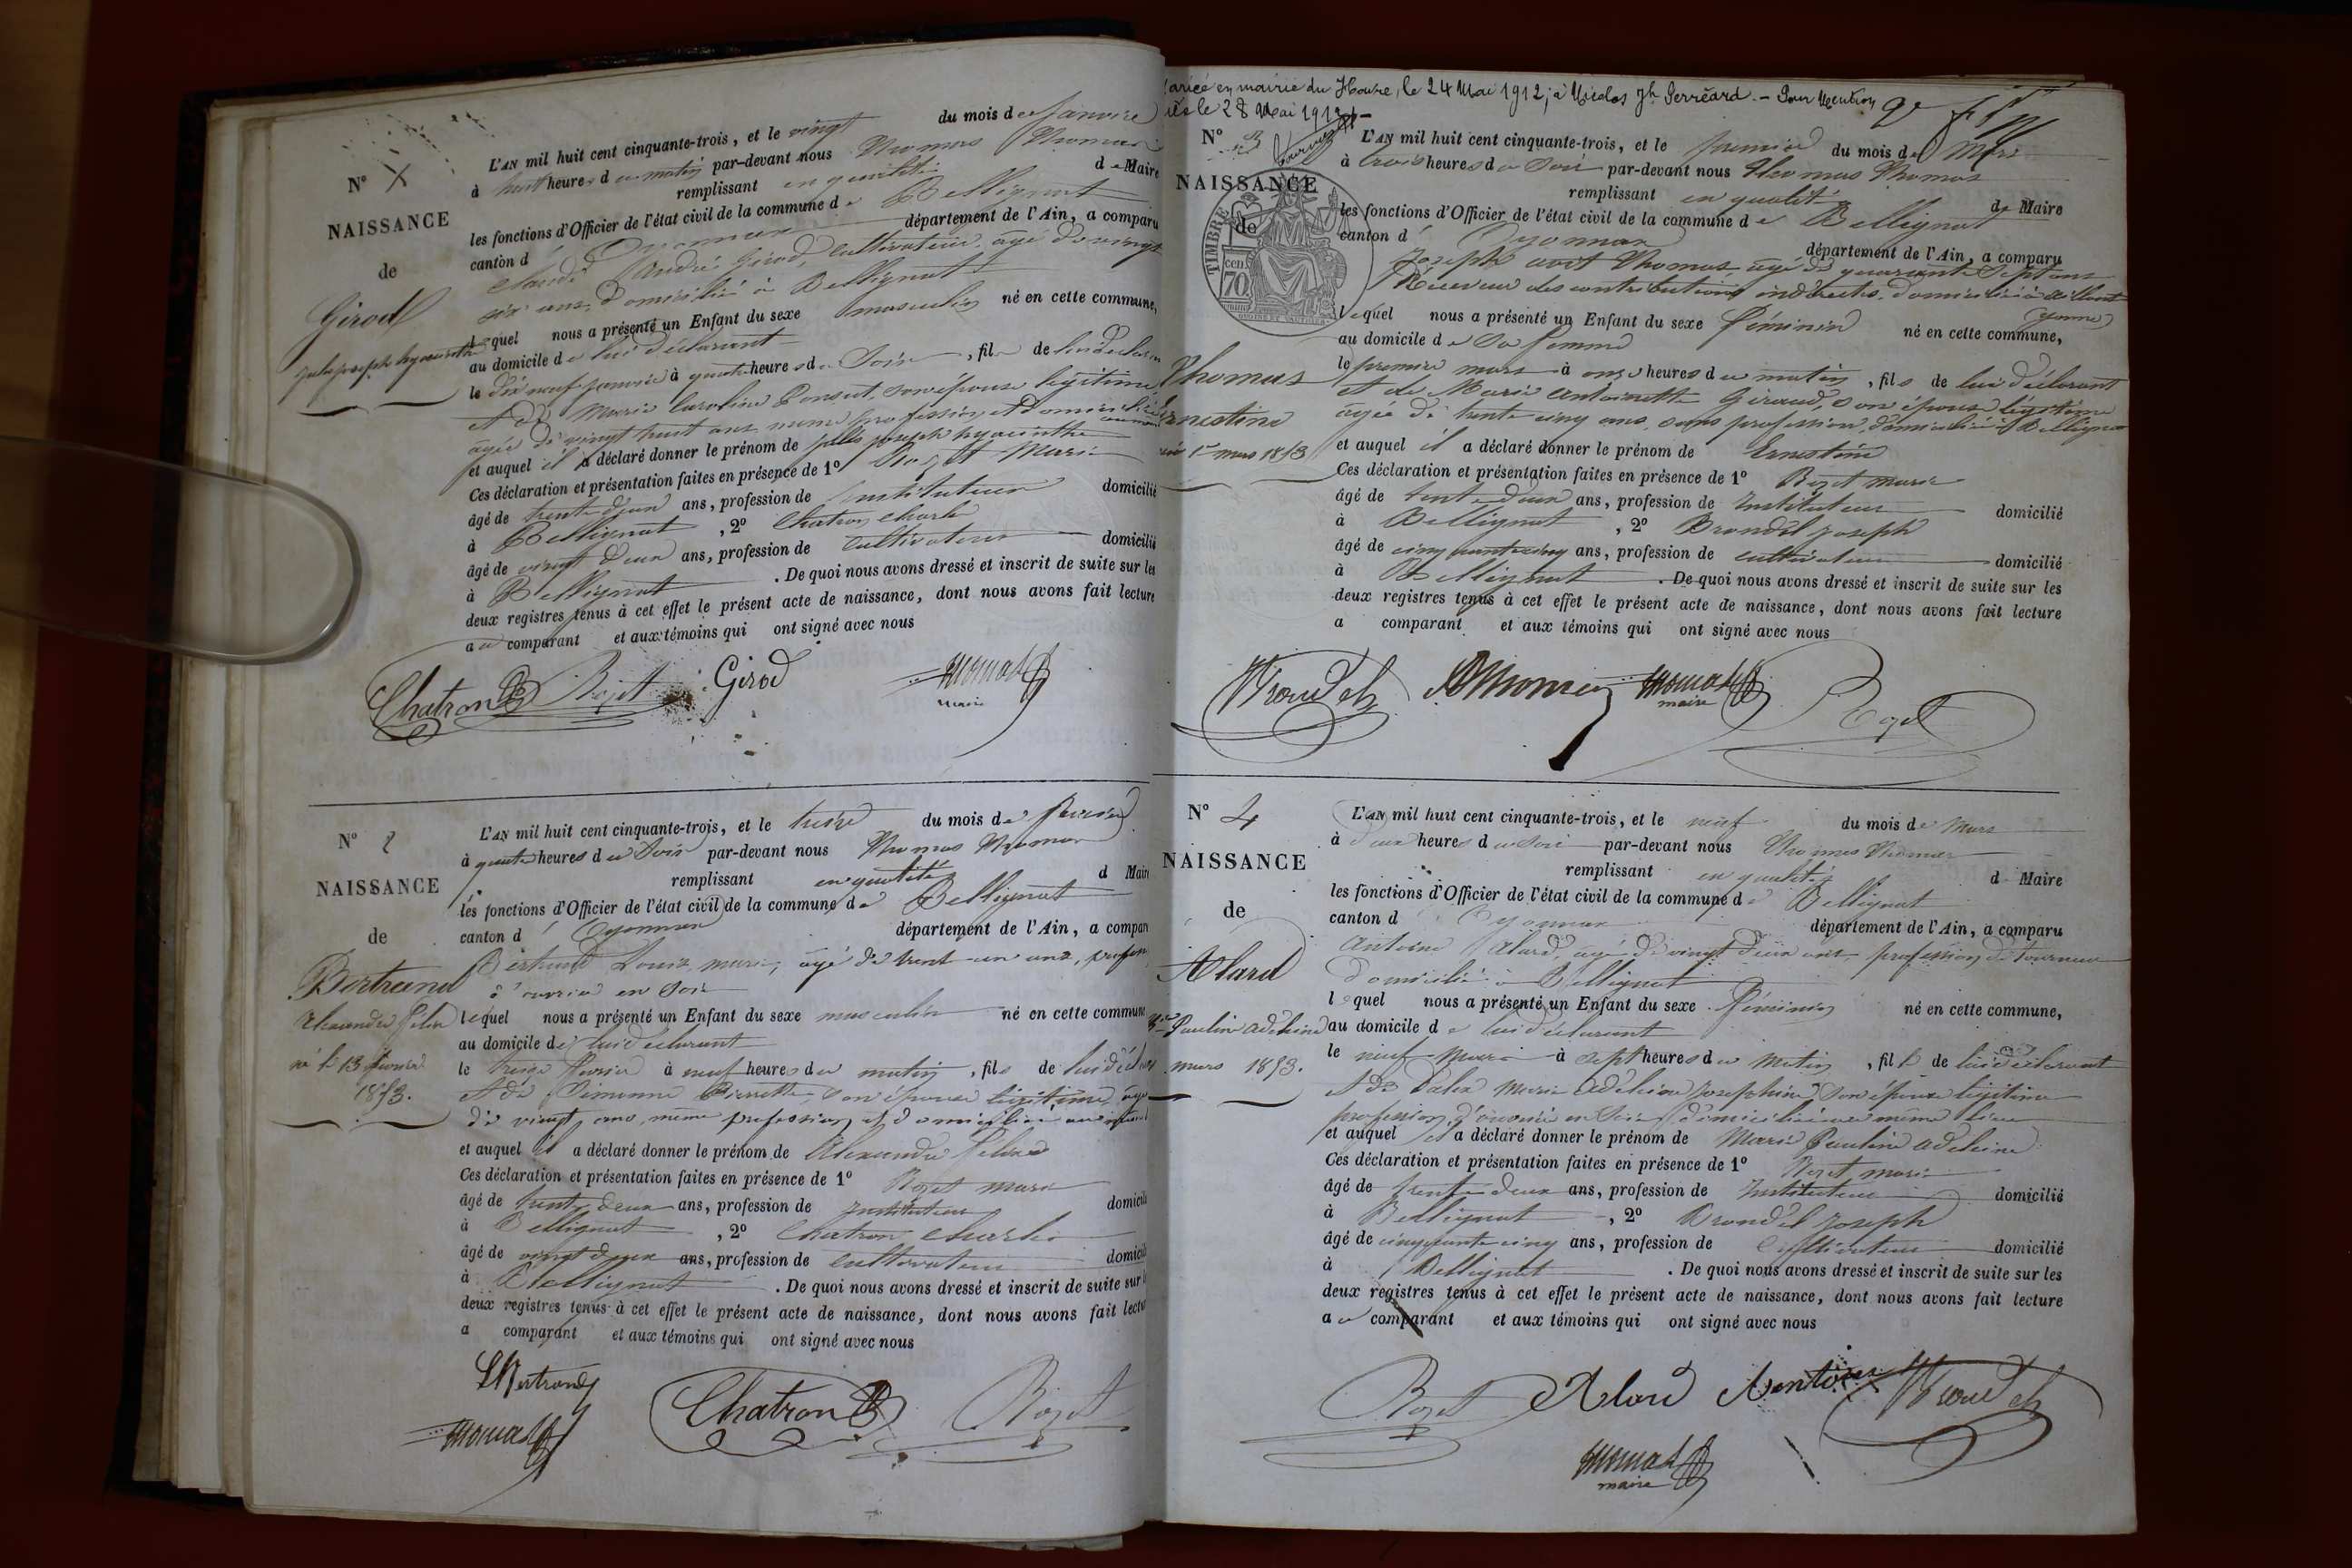 N° 1
NAISSANCE
de
Girod
jules joseph hyacinthe
L'AN mil huit cent cinquante-trois, et le vingt du mois de Janvier
à huit heures du matin par-devant nous Thomas Thomas
remplissant en qualité de Maire
les fonctions d'Officier de l'état civil de la commune de Bellignat
canton d'Oyonnax département de l'Ain, a comparu
Claude André Girod, cultivateur, âgé de vingt
six ans, domicilié à Bellignat
lequel nous a présenté un Enfant du sexe masculin né en cette commune,
au domicile de lui déclarant
le dix neuf janvier à quatre heures du Soir, fils de lui déclarant
et de Marie Caroline Ponsut, son épouse légitime
âgée de vingt huit ans même profession et domiciliée
et auquel il a déclaré donner le prénom de jules joseph hyacinthe
Ces déclaration et présentation faites en présence de 1° Rozet Marie
âgé de trente deux ans, profession de Instituteur domicilié
à Bellignat, 2° Chatron Charle
âgé de vingt deux ans, profession de cultivateur domicilié
à Bellignat. De quoi nous avons dressé et inscrit de suite sur les
deux registres tenus à cet effet le présent acte de naissance, dont nous avons fait lecture
au comparant et aux témoins qui ont signé avec nous
Chatron Rozet Girod Thomas
maire
N° 2
NAISSANCE
de
Bertrand
Alexandre félix
né le 13 février
1853.
L'AN mil huit cent cinquante-trois, et le treize du mois de février
à quatre heures du Soir par-devant nous Thomas Thomas
remplissant en qualité d Maire
les fonctions d'Officier de l'état civil de la commune de Bellignat
canton d'Oyonnax département de l'Ain, a comparu
Bertrand Louis marie, âgé de trente un ans, profession
d'ouvrier en Soie
lequel nous a présenté un Enfant du sexe masculin né en cette commune
au domicile de lui déclarant
le treize février à neuf heures du matin, fils de lui déclarant
et de Pierrette, son épouse légitime, âgée
de vingt ans, même profession et domiciliée au même
et auquel il a déclaré donner le prénom de Alexandre felix
Ces déclaration et présentation faites en présence de 1° Rozet marie
âgé de trente deux ans, profession de Instituteur domicilié
à Bellignat, 2° Chatron Charle
âgé de vingt deux ans, profession de cultivateur domicilié
à Bellignat. De quoi nous avons dressé et inscrit de suite sur les
deux registres tenus à cet effet le présent acte de naissance, dont nous avons fait lecture
a comparant et aux témoins qui ont signé avec nous
LBertrand
Thomas Chatron Rozet
Mariée en mairie du Havre, le 24 Mai 1912, à Nicolas Jh Serréard. –
le 28 Mai 1912
N° 3
NAISSANCE
de
TIMBRE
70 cen
Thomas
Ernestine
née 1er mars 1853
L'AN mil huit cent cinquante-trois, et le premier du mois de Mars
à trois heures du Soir par-devant nous Thomas Thomas
remplissant en qualité de Maire
les fonctions d'Officier de l'état civil de la commune de Bellignat
canton d'Oyonnax département de l'Ain, a comparu
Joseph Thomas âgé de quarante Sept ans
Receveur des contributions indirectes, domicilié à aillant
(yonne)
lequel nous a présenté un Enfant du sexe féminin né en cette commune,
au domicile de Sa femme
le premier mars à onze heures du matin, fils de lui déclarant
et de Marie antoinette Giraud, son épouse légitime
âgée de trente cinq ans, sans profession, domiciliée à Bellignat
et auquel il a déclaré donner le prénom de Ernestine
Ces déclaration et présentation faites en présence de 1° Rozet marie
âgé de trente deux ans, profession de Instituteur domicilié
à Bellignat, 2° joseph
âgé de cinquante cinq ans, profession de cultivateur domicilié
à Bellignat. De quoi nous avons dressé et inscrit de suite sur les
deux registres tenus à cet effet le présent acte de naissance, dont nous avons fait lecture
a comparant et aux témoins qui ont signé avec nous
Thomas Rozet
maire
N° 4
NAISSANCE
de
Alard
Paulin adeleine
mars 1853.
L'AN mil huit cent cinquante-trois, et le neuf du mois de Mars
à deux heures du Soir par-devant nous Thomas Thomas
remplissant en qualité d Maire
les fonctions d'Officier de l'état civil de la commune de Bellignat
canton d'Oyonnax département de l'Ain, a comparu
Antoine Alard, âgé de vingt deux ans profession de tourneur
domicilié à Bellignat
lequel nous a présenté un Enfant du sexe féminin né en cette commune,
au domicile de lui déclarant
le neuf Mars à sept heures du Matin, fille de lui déclarant
et de Marie adeleine josephine son épouse légitime
profession d'ouvrière en Soie domiciliée au même lieu
et auquel il a déclaré donner le prénom de Marie Pauline adeleine
Ces déclaration et présentation faites en présence de 1° Rozet marie
âgé de trente deux ans, profession de Instituteur domicilié
à Bellignat, 2° joseph
âgé de cinquante cinq ans, profession de Cultivateur domicilié
à Bellignat. De quoi nous avons dressé et inscrit de suite sur les
deux registres tenus à cet effet le présent acte de naissance, dont nous avons fait lecture
au comparant et aux témoins qui ont signé avec nous
Rozet Alard Antoine
Thomas
maire